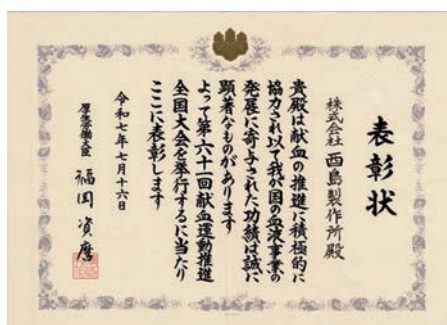 表彰状
株式会社 酉島製作所殿
貴殿は献血の推進に積極的に
協力され以て我が国の血液事業の
発展に寄与された功績は誠に
顕著なものがあります
よって第六十一回献血運動推進
全国大会を挙行するに当たり
ここに表彰します
令和七年七月十六日
厚生労働大臣 福岡資麿